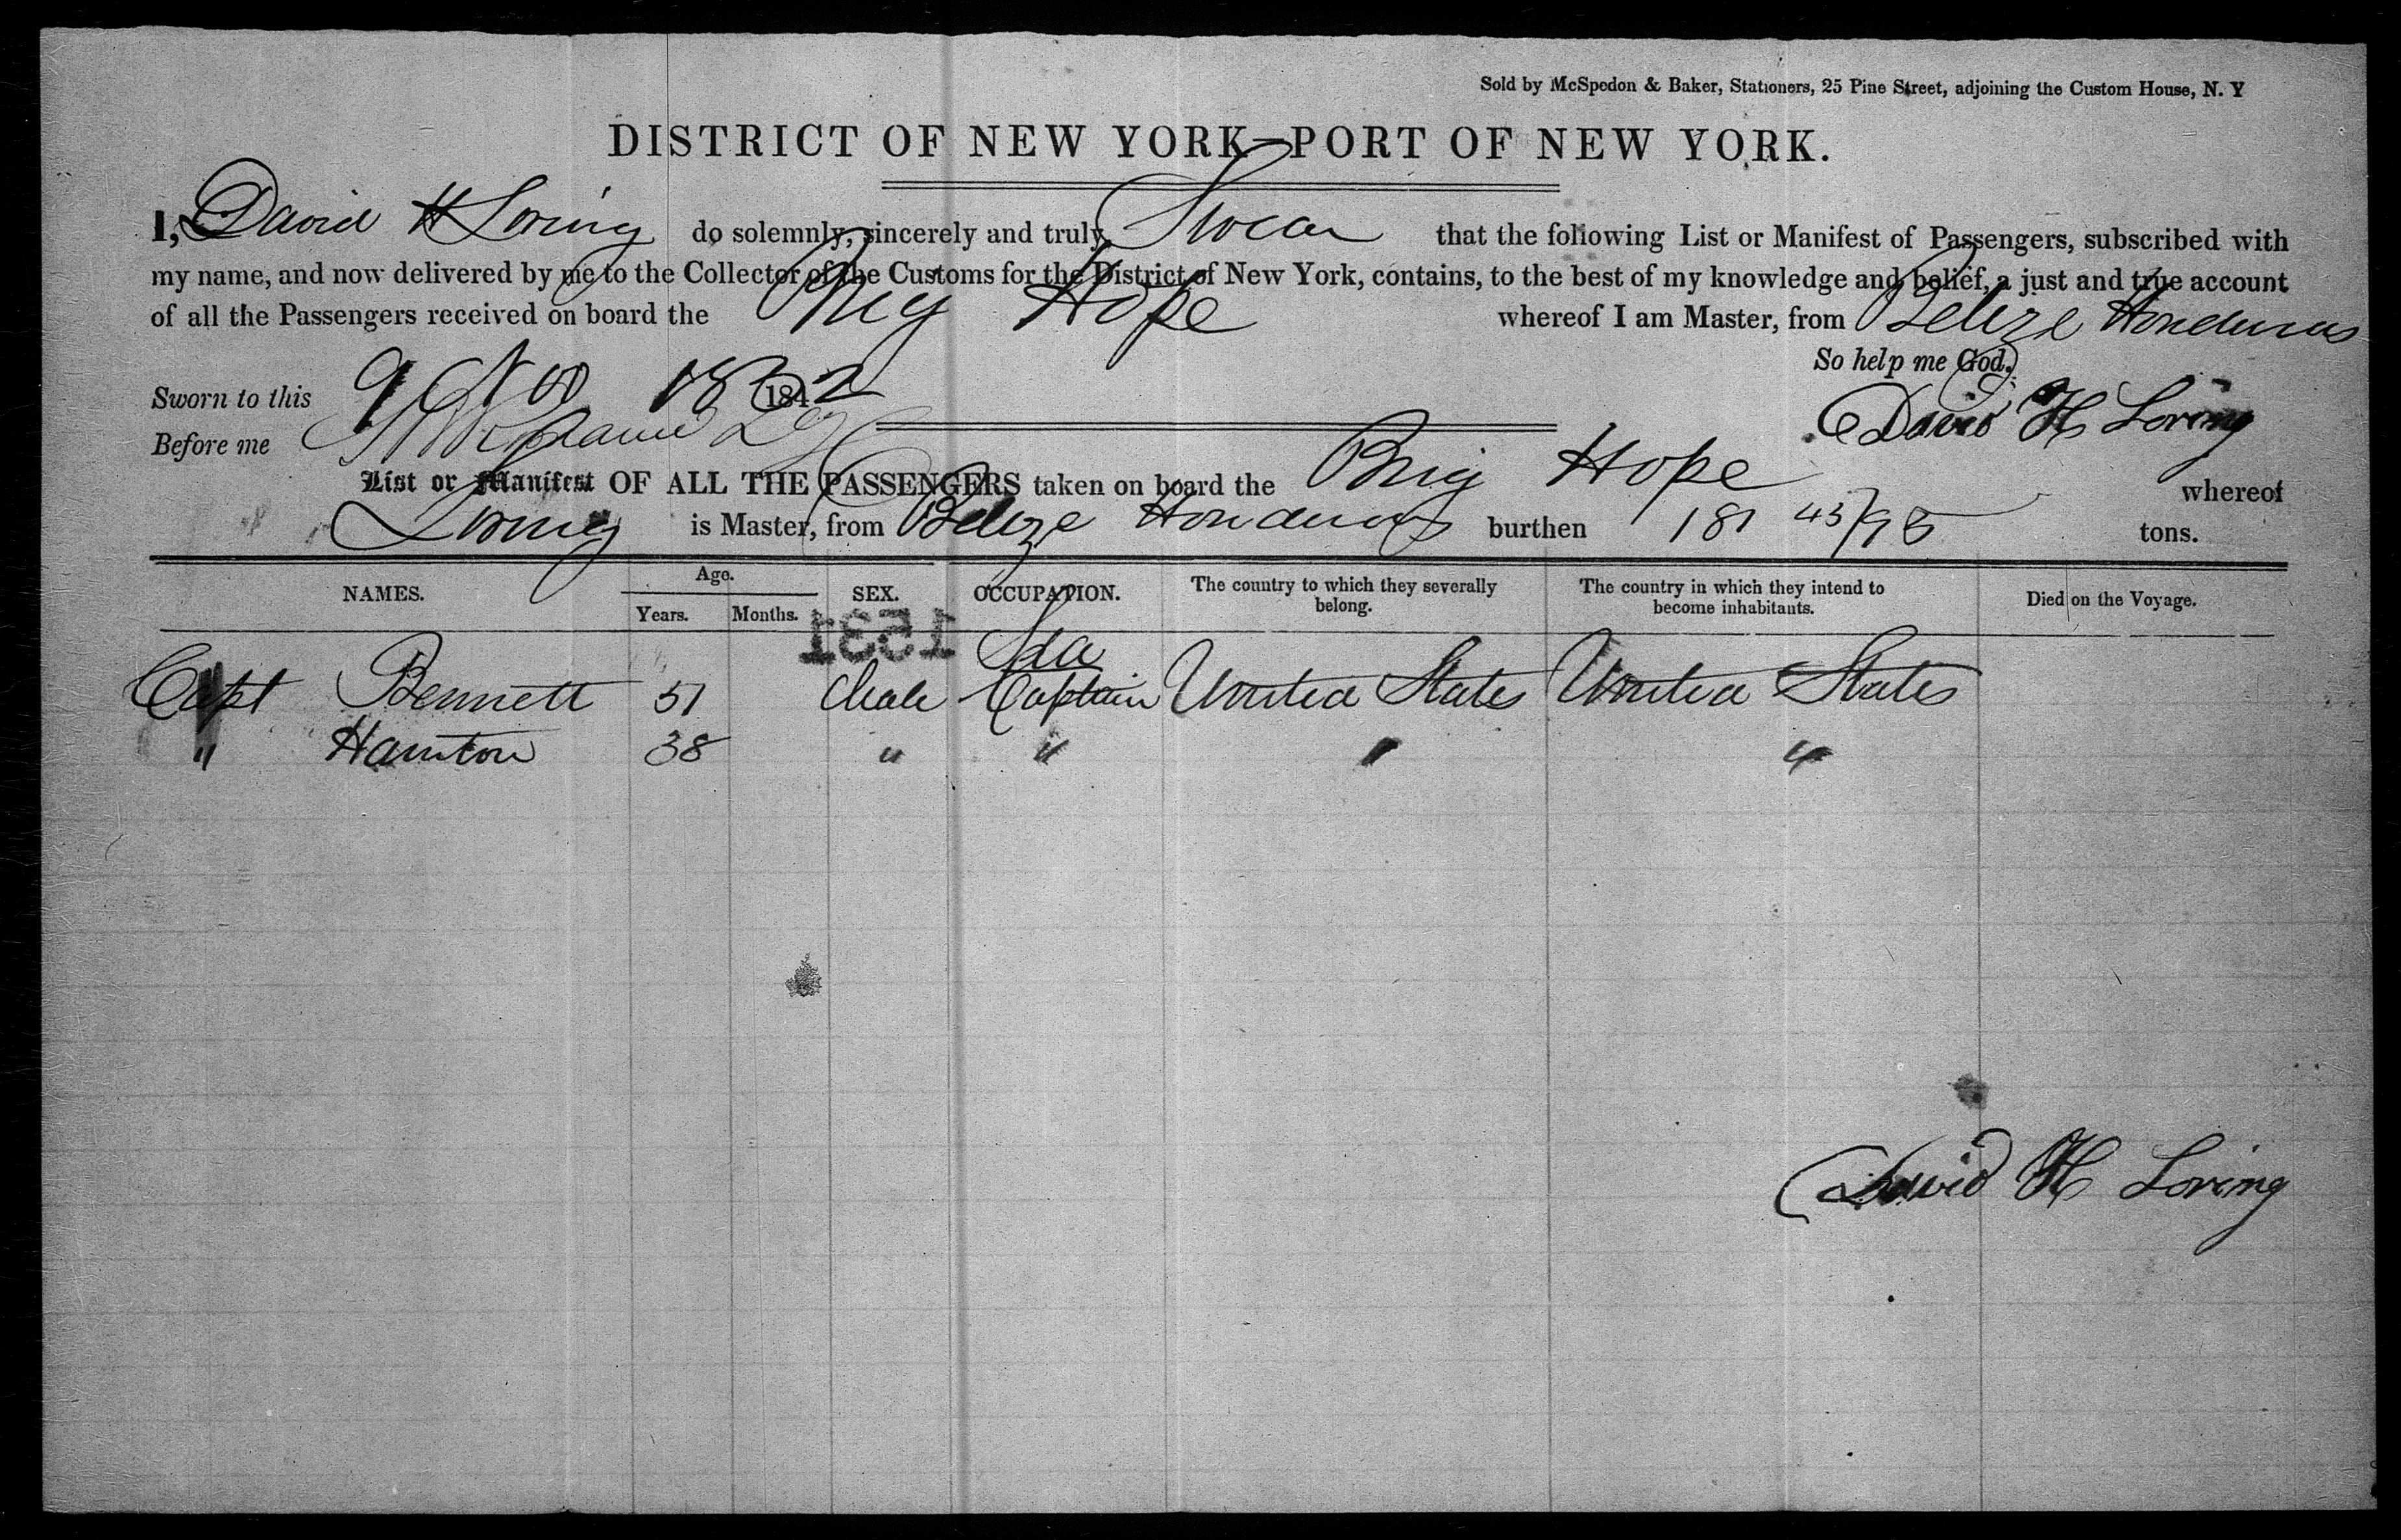 Sold by McSpedon & Baker, Stationers, 25 Pine Street, adjoining the Custom House, N. Y
DISTRICT OF NEW YORK—PORT OF NEW YORK.
I, David H Loring do solemnly, sincerely and truly Swear that the following List or Manifest of Passengers, subscribed with
my name, and now delivered by me to the Collector of the Customs for the District of New York, contains, to the best of my knowledge and belief, a just and true account
of all the Passengers received on board the Brig Hope whereof I am Master, from Belize Honduras
So help me God.
Sworn to this 9 Nov 184
David H Loring
Before me
List or Manifest OF ALL THE PASSENGERS taken on board the Brig Hope whereof
Loring is Master, from Belize Honduras burthen 181 45/95 tons.
NAMES. Age. SEX. OCCUPATION. The country to which they severally belong. The country in which they intend to become inhabitants. Died on the Voyage.
Years. Months.
1531
Sea
Capt Bennett 51 Male Captain United States United States
" Hamton 38 " " " "
David H Loring